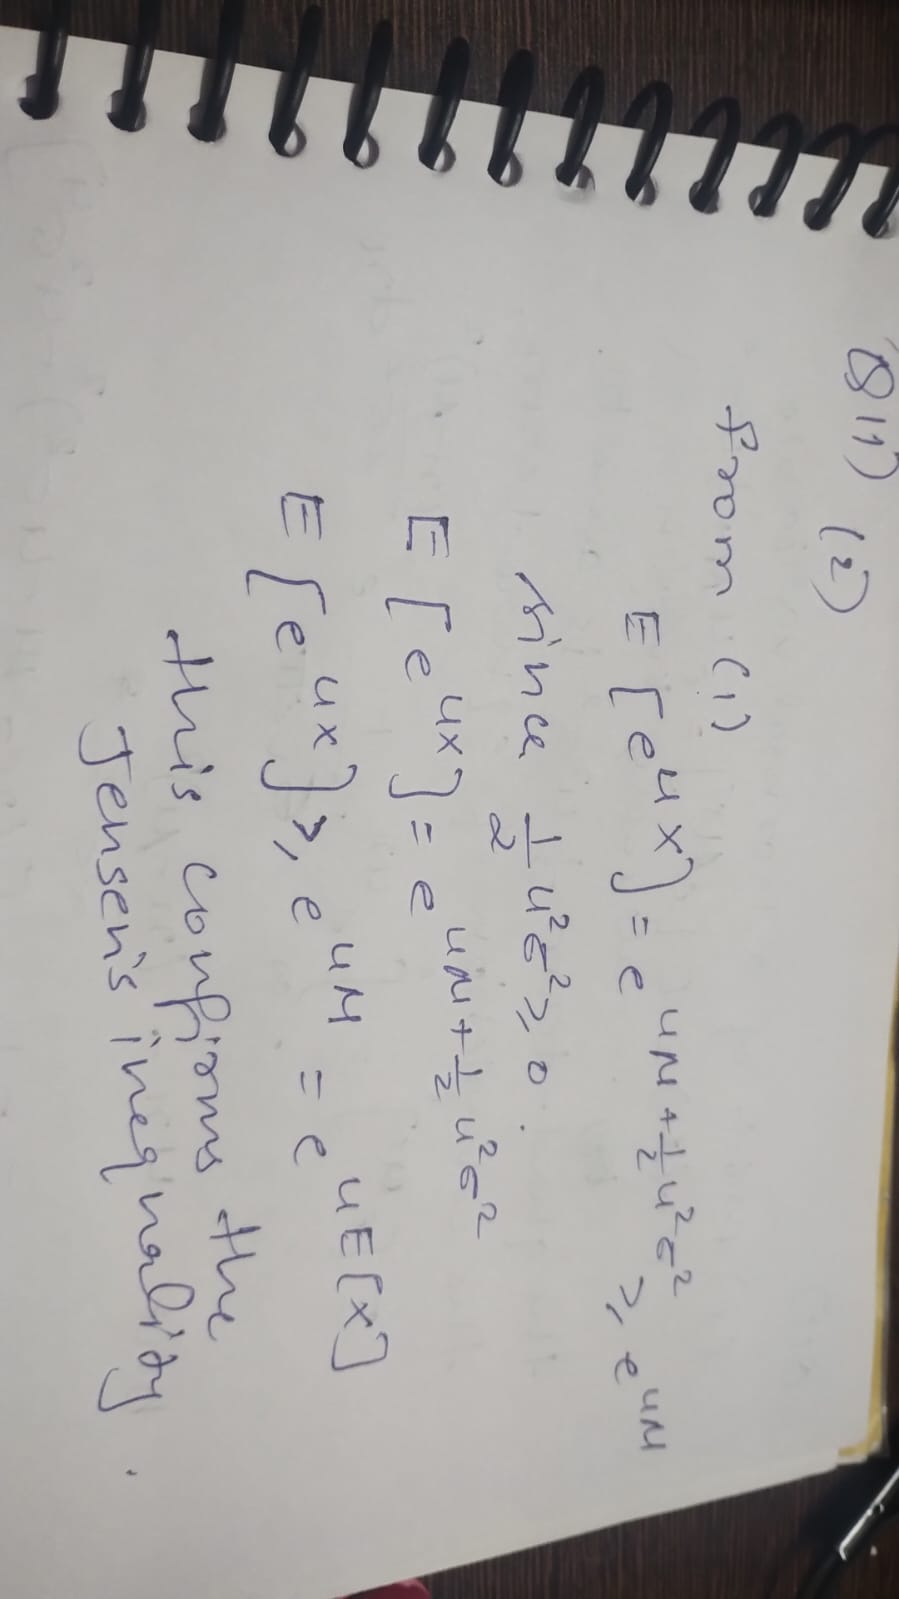 Q11) (2)
from (1)
E[e^{ux}] = e^{uμ + 1/2 u²σ²} ≥ e^{uμ}
since 1/2 u²σ² ≥ 0.
E[e^{ux}] = e^{uμ + 1/2 u²σ²}
E[e^{ux}] ≥ e^{uμ} = e^{uE[x]}
this confirms the
Jensen's inequality.